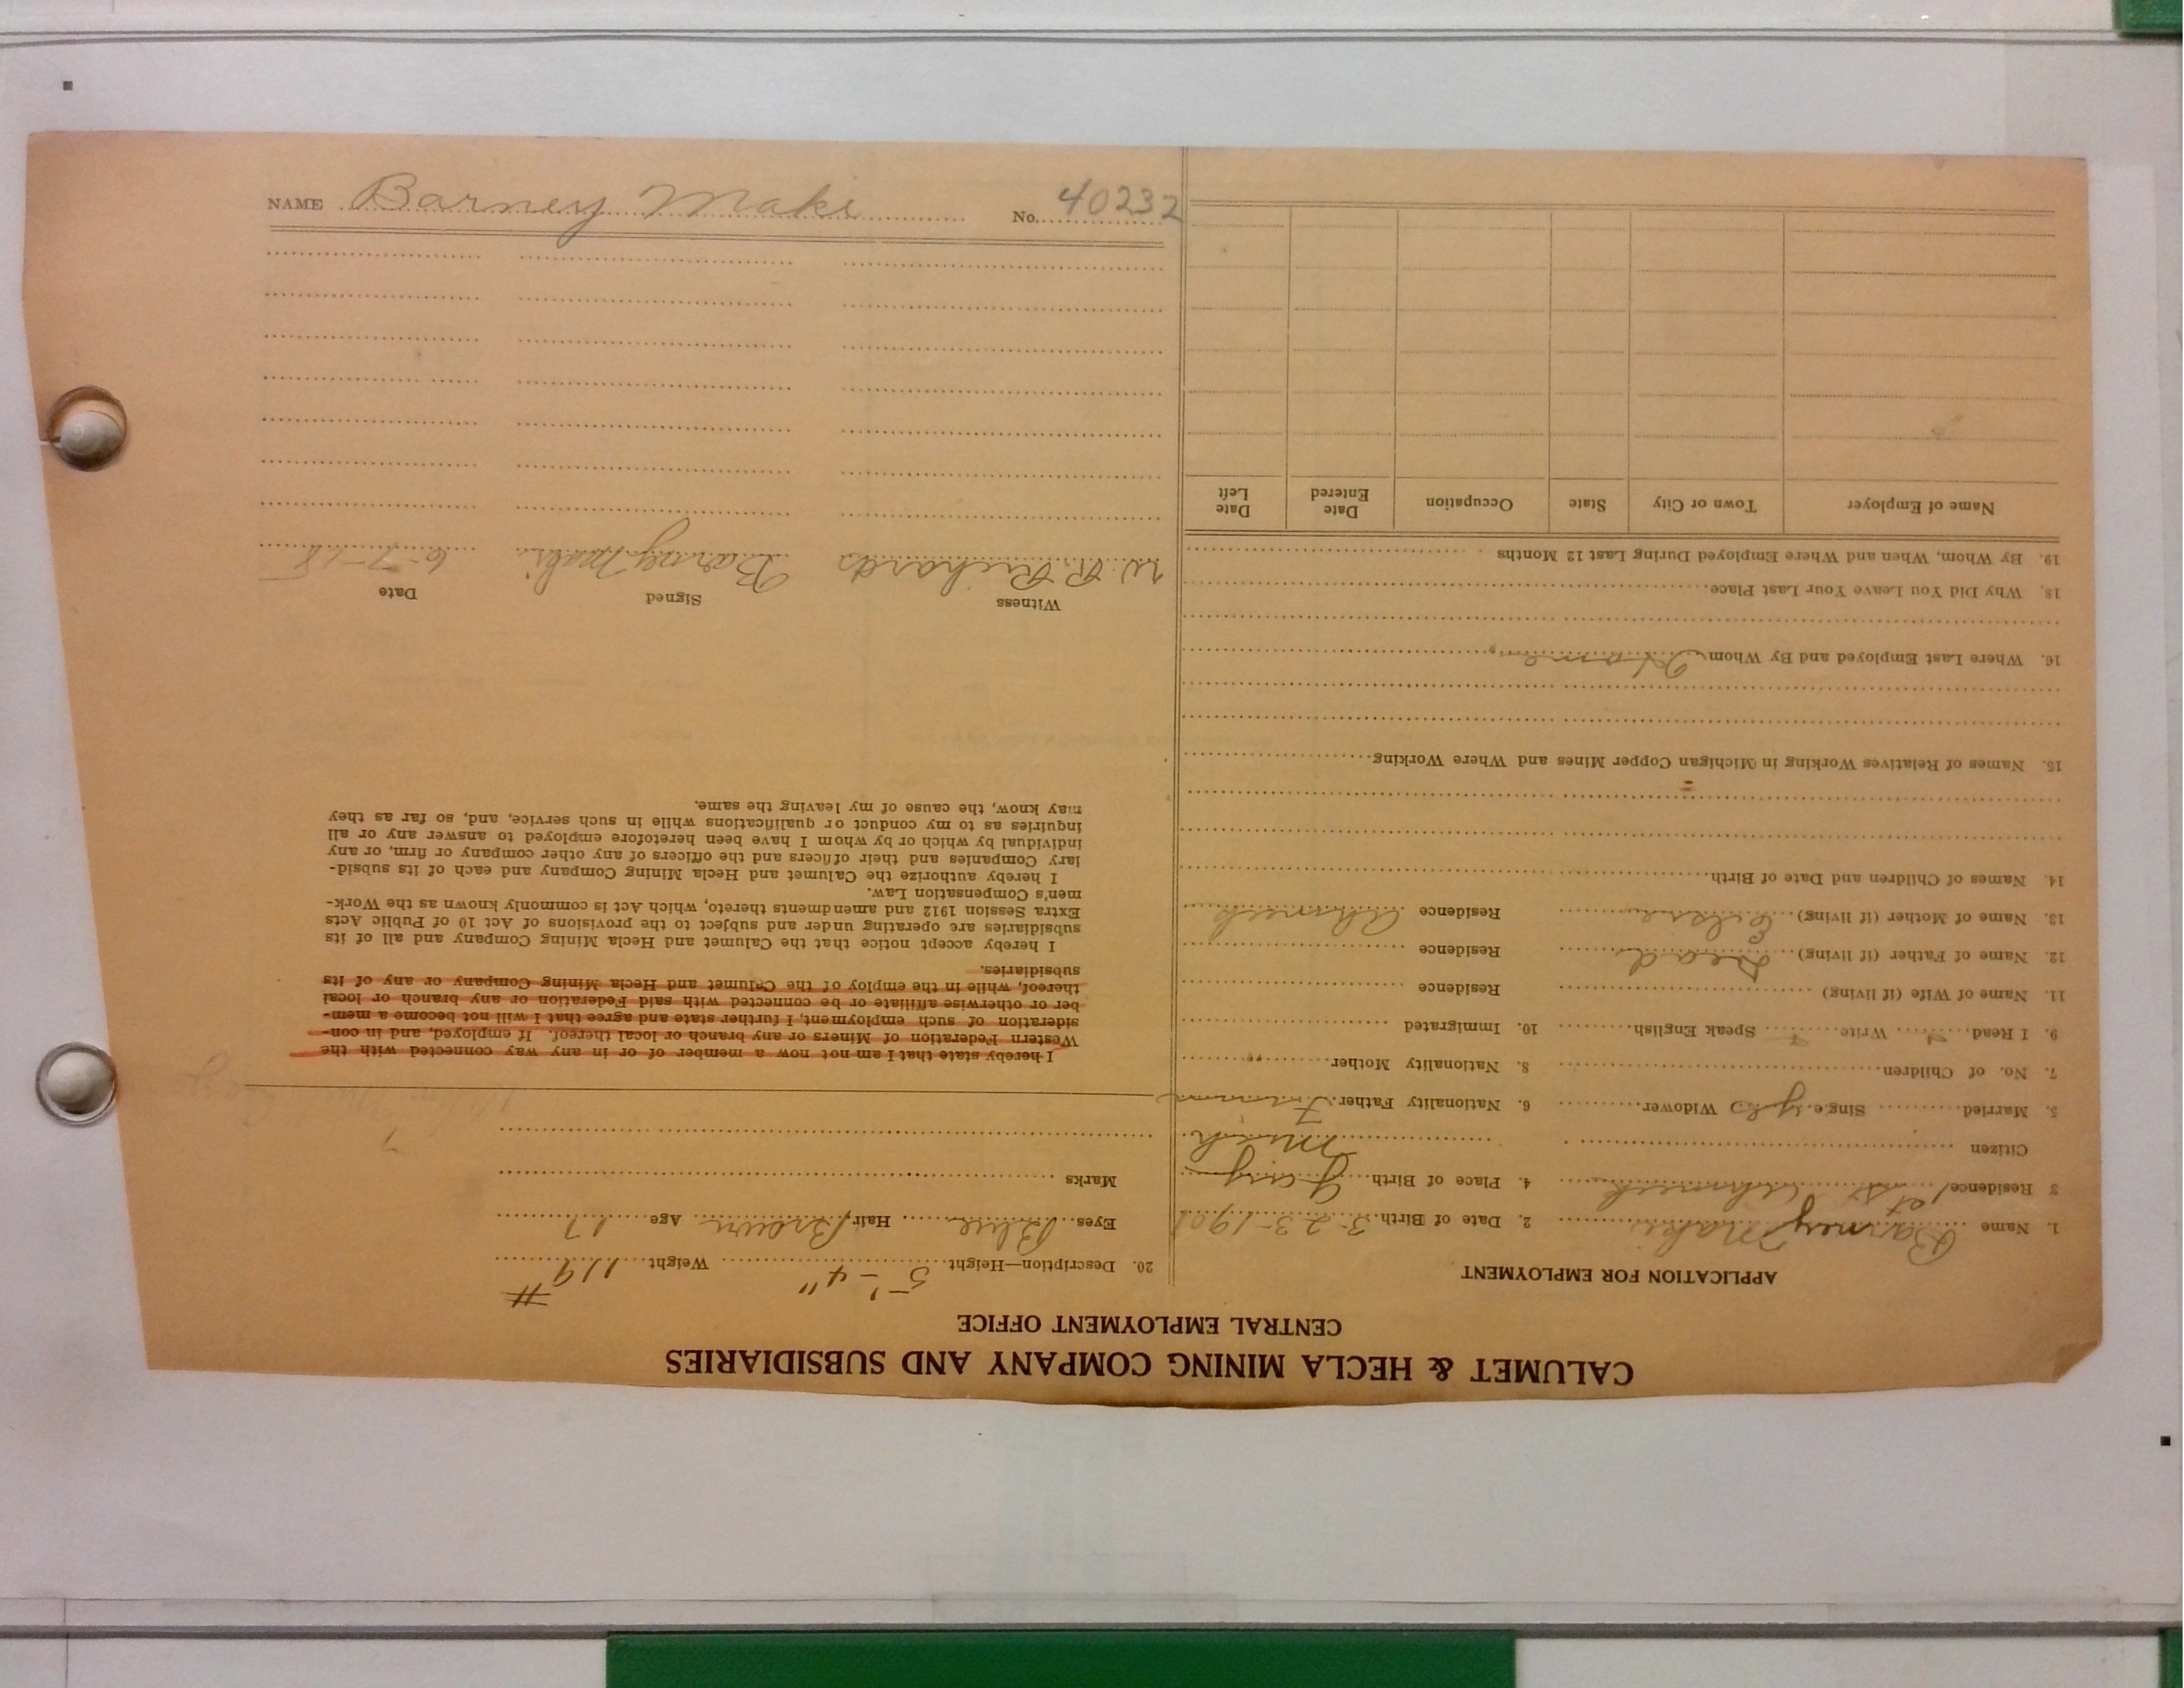 CALUMET & HECLA MINING COMPANY AND SUBSIDIARIES
CENTRAL EMPLOYMENT OFFICE
APPLICATION FOR EMPLOYMENT
1. Name Barney Maki 2. Date of Birth 3-23-1901
3 Residence 1st St Ahmeek 4. Place of Birth
Citizen Mich
5. Married Single yes Widower 6. Nationality Father
7. No. of Children 8. Nationality Mother "
9. I Read Write Speak English 10. Immigrated
11. Name of Wife (if living) Residence
12. Name of Father (if living) Dead Residence
13. Name of Mother (if living) Residence Ahmeek
14. Names of Children and Date of Birth
15. Names of Relatives Working in Michigan Copper Mines and Where Working
16. Where Last Employed and By Whom Home
18. Why Did You Leave Your Last Place
19. By Whom, When and Where Employed During Last 12 Months
Name of Employer Town or City State Occupation Date Entered Date Left
20. Description—Height 5'-4" Weight 119 #
Eyes Blue Hair Brown Age 17
Marks
I hereby state that I am not now a member of or in any way connected with the
Western Federation of Miners or any branch or local thereof. If employed, and in con-
sideration of such employment, I further state and agree that I will not become a mem-
ber or otherwise affiliate or be connected with said Federation or any branch or local
thereof, while in the employ of the Calumet and Hecla Mining Company or any of its
subsidiaries.
I hereby accept notice that the Calumet and Hecla Mining Company and all of its
subsidiaries are operating under and subject to the provisions of Act 10 of Public Acts
Extra Session 1912 and amendments thereto, which Act is commonly known as the Work-
men's Compensation Law.
I hereby authorize the Calumet and Hecla Mining Company and each of its subsid-
iary Companies and their officers and the officers of any other company or firm, or any
individual by which or by whom I have been heretofore employed to answer any or all
inquiries as to my conduct or qualifications while in such service, and, so far as they
may know, the cause of my leaving the same.
Witness Signed Date
W. R. Richards Barney Maki 6-7-18
NAME Barney Maki No. 40232